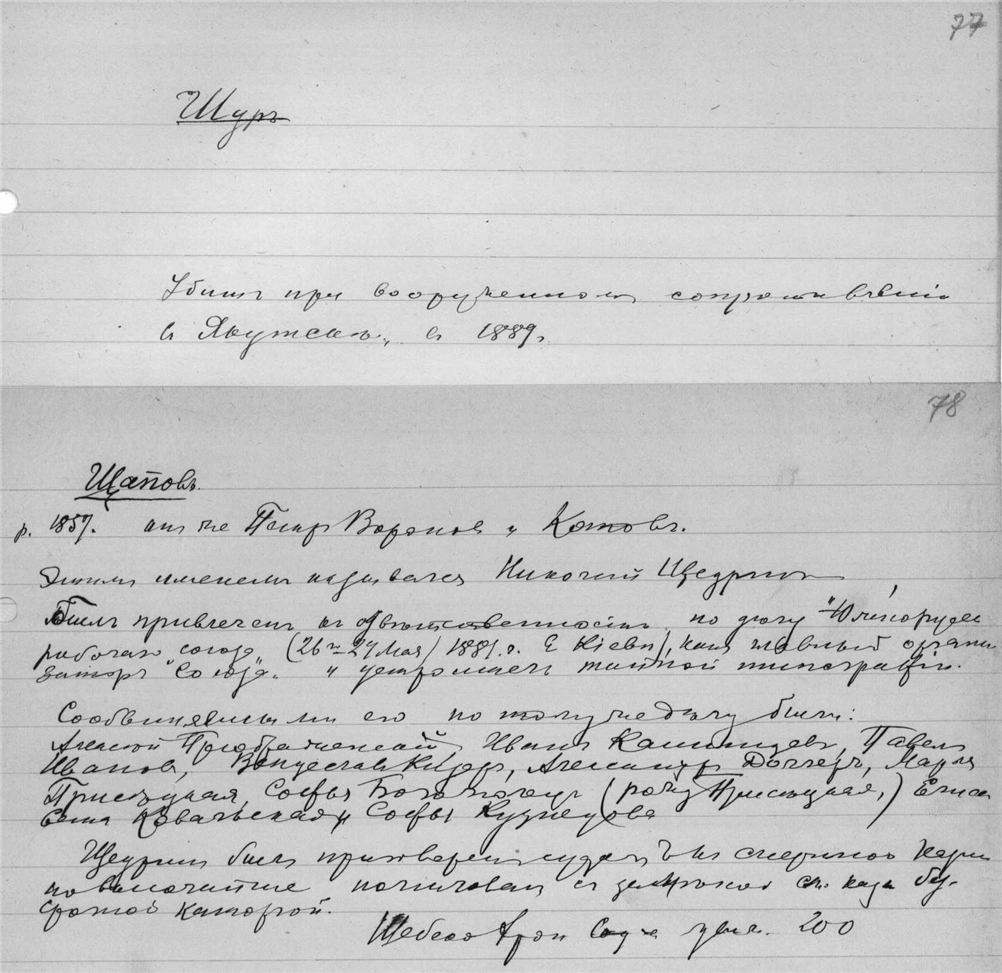 77
Шуръ
Убитъ при вооруженномъ сопротивленіи
въ Якутскѣ, въ 1889.
78
Щаповъ.
р. 1857. онъ же Петръ Воронов и Котовъ.
Этимъ именемъ назывался Николай Щедринъ
Былъ привлеченъ къ отвѣтственности по делу "Южнорусск
рабочаго союза (26–27 Мая 1881 г. в Кіевѣ), как главный органи
заторъ "Союза" и устроитель тайной типографіи.
Сообвиняемыми его по тому же делу были:
Алексей Преображенский, Иванъ Кашинцевъ, Павелъ
Ивановъ, Александръ Доллеръ, Марія
Присецкая, Софья Богомолецъ (рожд. Присецкая,) Елиса
вета Ковальская и Софья Кузнецова
Щедринъ былъ приговоренъ судомъ къ смертной казни
помилован съ замѣною см. казни бес
срочной каторгой.
200